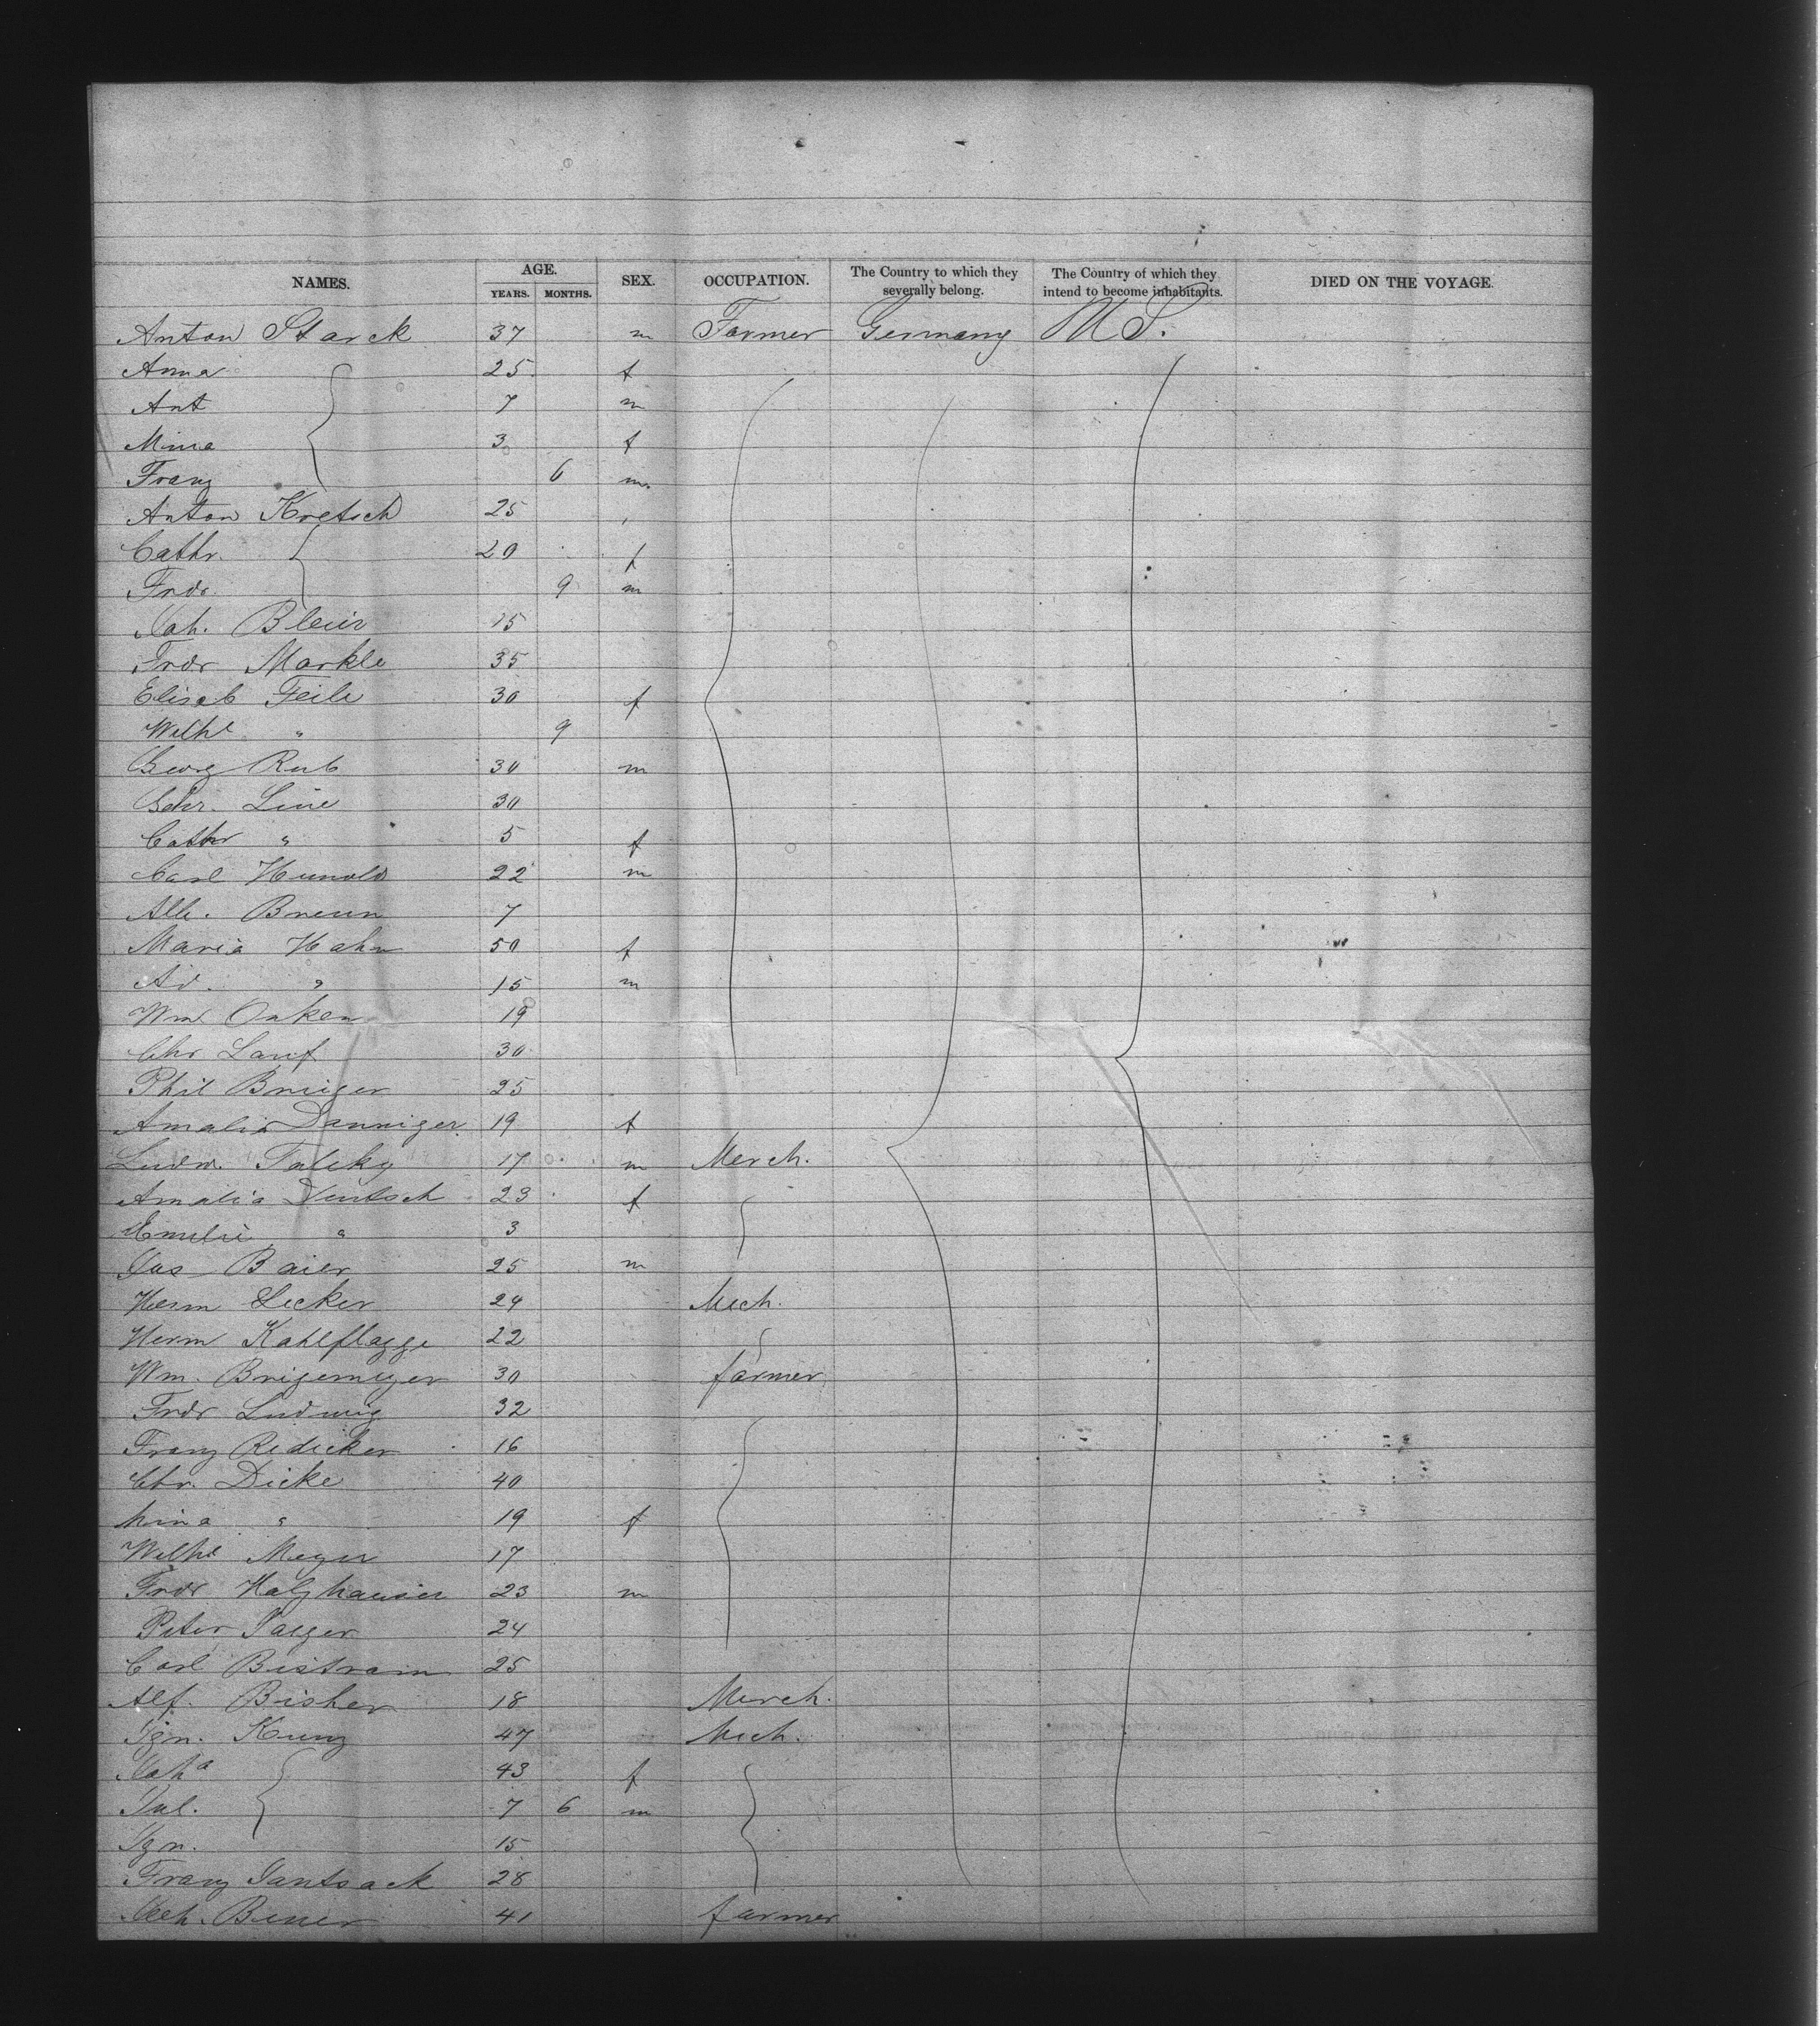 NAMES. AGE. SEX. OCCUPATION. The Country to which they severally belong. The Country of which they intend to become inhabitants. DIED ON THE VOYAGE.
YEARS. MONTHS.
Anton Starck 37 m Farmer Germany U S.
Anna 25 f
Ant 7 m
Mina 3 f
Franz 6 m
Anton Kretsch 25
Cathr. 20 f
Frdr. 9 m
Joh. Bleier 15
Frdr Markle 35
Elisab Feile 30 f
Wilhe " 9
Georg Rub 30 m
Gehr. Line 30
Cathr " 5 f
Carl Hunold 22 m
Alb. Breun 7
Maria Hahn 50 f
Ad. " 15 m
Wm Onken 19
Chr Lauf 30
Phil Brueger 25
Amalia Danniger 19 f
Ludw. Taleky 17 m Merch.
Amalia Deutsch 23 f
Emilie " 3
Jos Baier 25 m
Herm Lecker 24 Mech.
Herm Kahlflagge 22
Wm. 30 farmer
Frdr Ludwig 32
Franz Redicker 16
Chr. Dicke 40
Mina " 19 f
Wilhe Meyer 17
Frdr Holzhauser 23 m
Peter Jaeger 24
Carl Bistram 25
Alf. Bisher 18 Merch.
Ign. Kunz 47 Mech.
Joha 43 f
Jul. 7 6 m
Ign. 15
Franz Jantsack 28
Bener 41 farmer